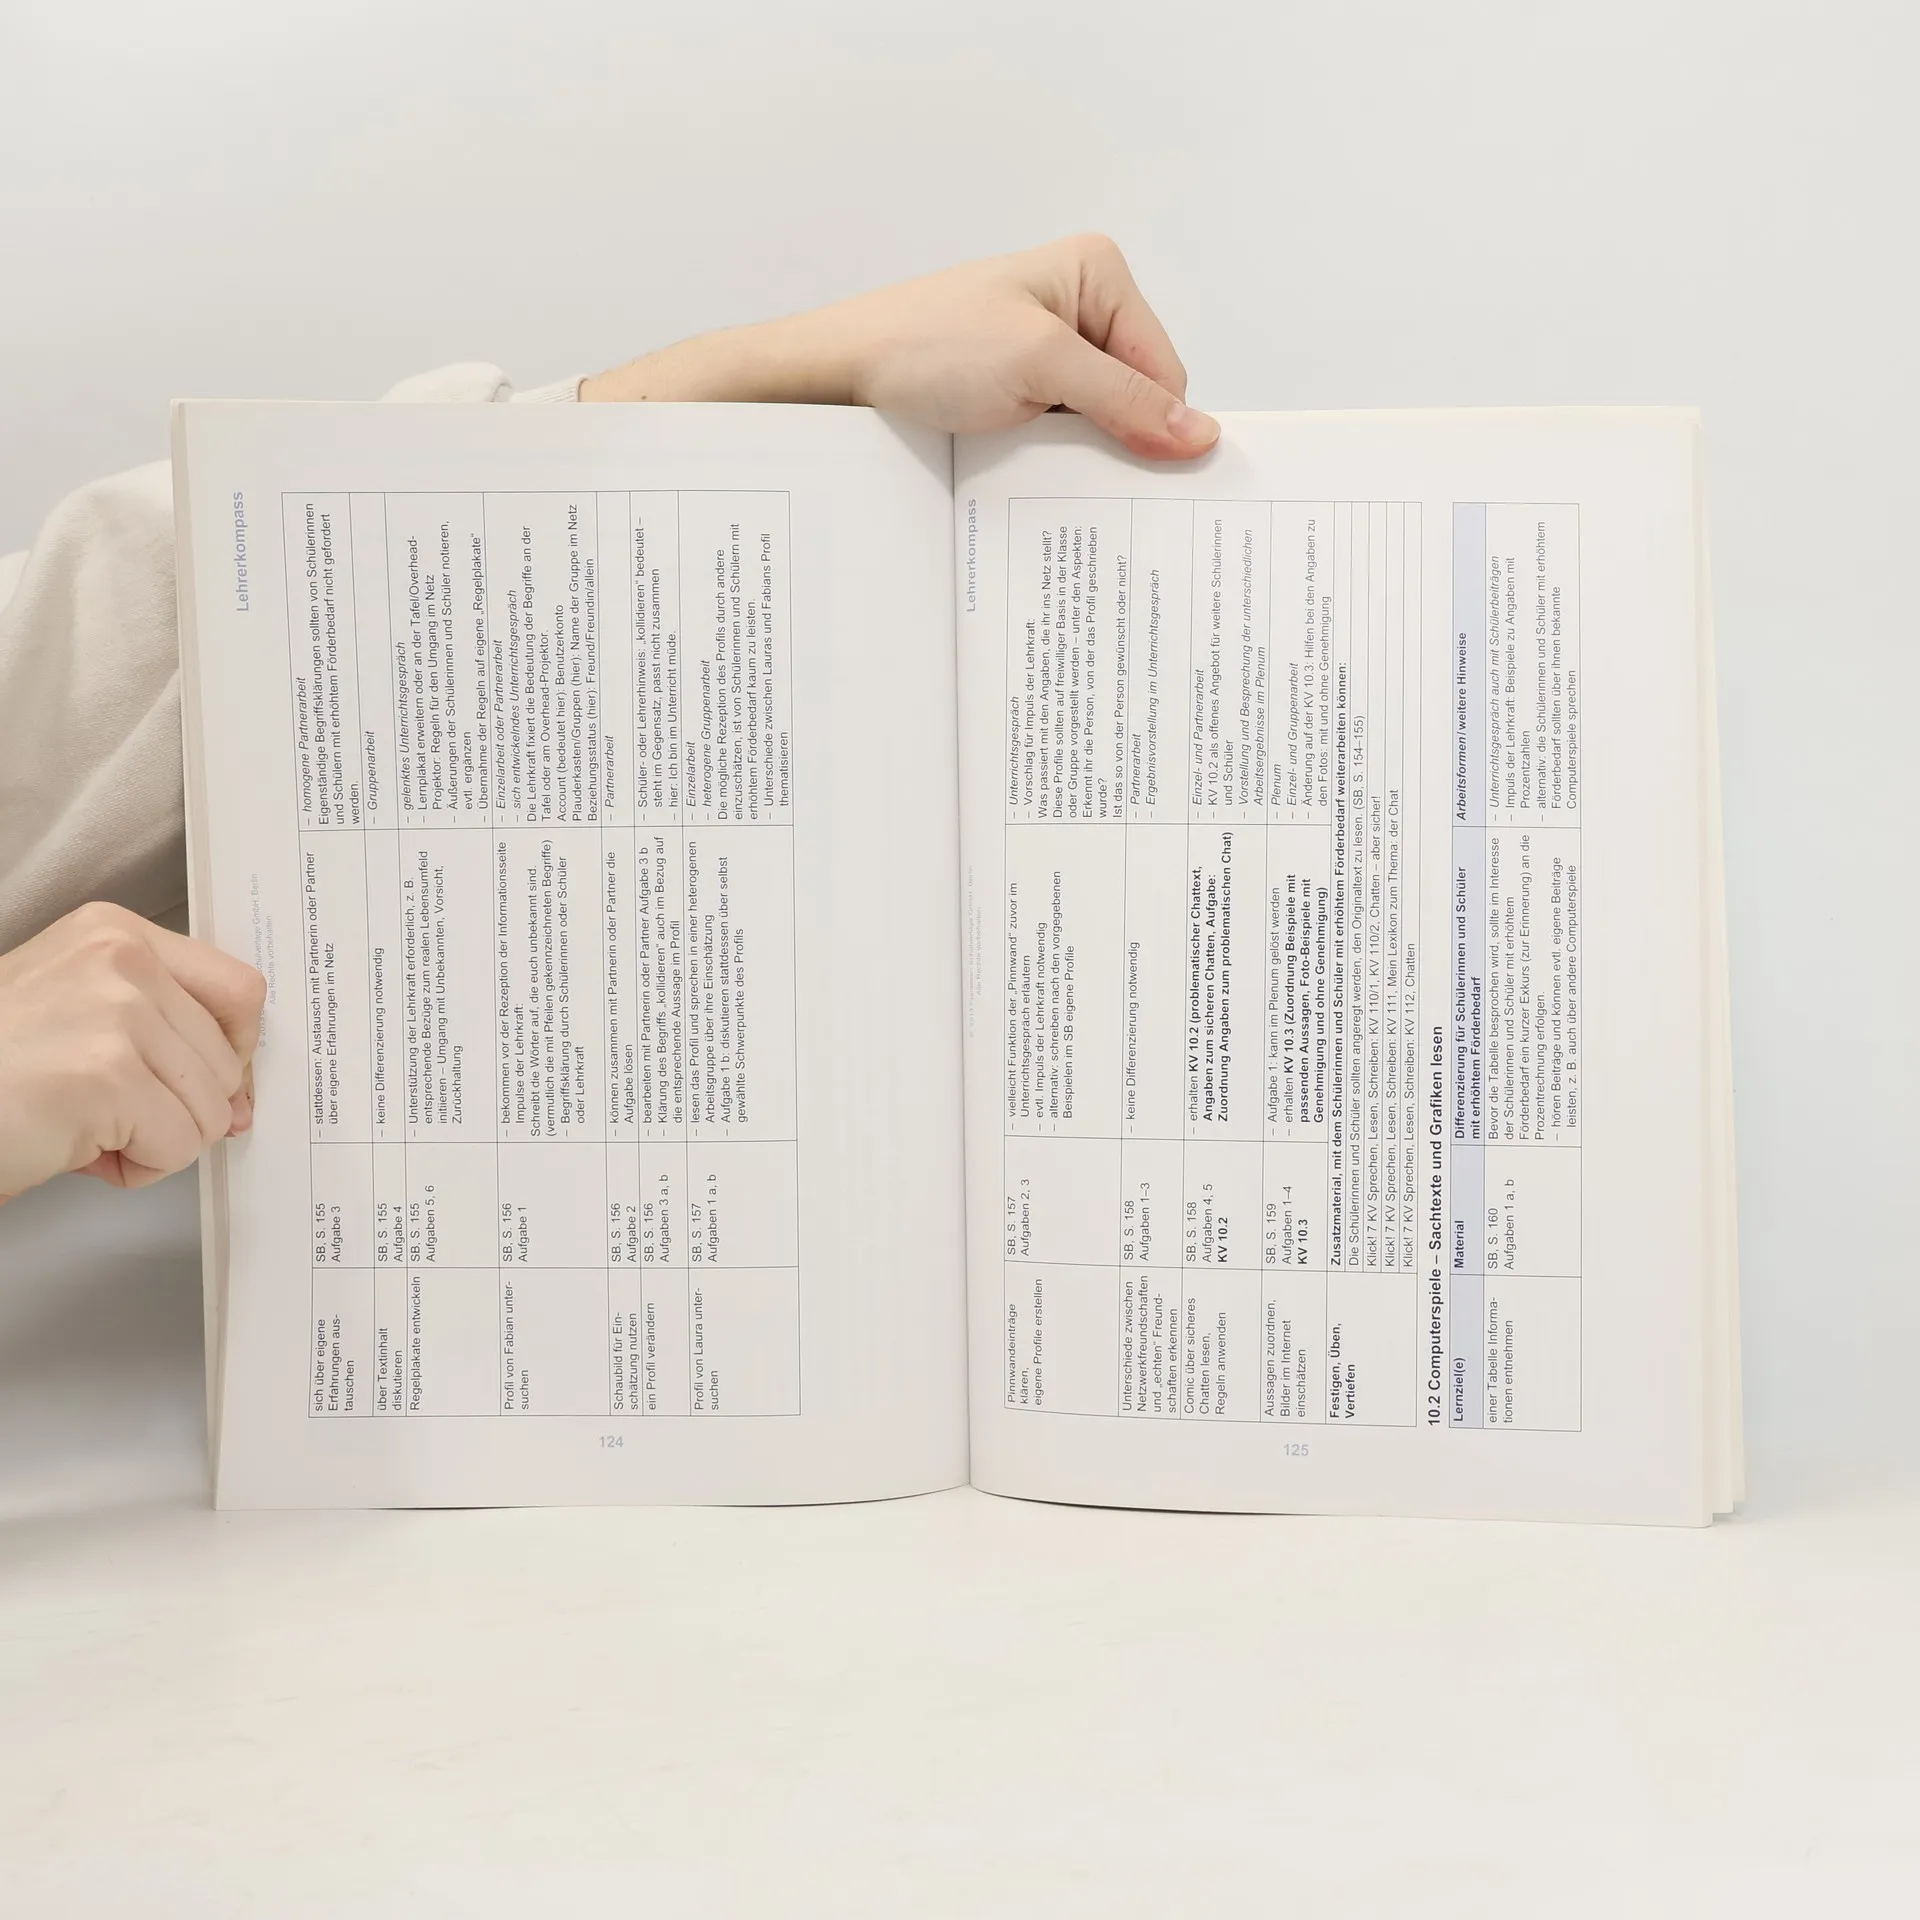 Lehrerkompass
sich über eigene
Erfahrungen aus-
tauschen
SB, S. 155
Aufgabe 3
– stattdessen: Austausch mit Partnerin oder Partner
über eigene Erfahrungen im Netz
– homogene Partnerarbeit
Eigenständige Begriffsklärungen sollten von Schülerinnen
und Schülern mit erhöhtem Förderbedarf nicht gefordert
werden.
über Textinhalt
diskutieren
SB, S. 155
Aufgabe 4
– keine Differenzierung notwendig
– Gruppenarbeit
Regelplakate entwickeln
SB, S. 155
Aufgaben 5, 6
– Unterstützung der Lehrkraft erforderlich, z. B.
entsprechende Bezüge zum realen Lebensumfeld
initiieren – Umgang mit Unbekannten, Vorsicht,
Zurückhaltung
– gelenktes Unterrichtsgespräch
– Lernplakat erweitern oder an der Tafel/Overhead-
Projektor: Regeln für den Umgang im Netz
– Äußerungen der Schülerinnen und Schüler notieren,
evtl. ergänzen
– Übernahme der Regeln auf eigene „Regelplakate“
Profil von Fabian unter-
suchen
SB, S. 156
Aufgabe 1
– bekommen vor der Rezeption der Informationsseite
Impulse der Lehrkraft:
Schreibt die Wörter auf, die euch unbekannt sind.
(vermutlich die mit Pfeilen gekennzeichneten Begriffe)
– Begriffsklärung durch Schülerinnen oder Schüler
oder Lehrkraft
– Einzelarbeit oder Partnerarbeit
– sich entwickelndes Unterrichtsgespräch
Die Lehrkraft fixiert die Bedeutung der Begriffe an der
Tafel oder am Overhead-Projektor.
Account (bedeutet hier): Benutzerkonto
Plauderkasten/Gruppen (hier): Name der Gruppe im Netz
Beziehungsstatus (hier): Freund/Freundin/allein
Schaubild für Ein-
schätzung nutzen
SB, S. 156
Aufgabe 2
– können zusammen mit Partnerin oder Partner die
Aufgabe lösen
– Partnerarbeit
ein Profil verändern
SB, S. 156
Aufgaben 3 a, b
– bearbeiten mit Partnerin oder Partner Aufgabe 3 b
– Klärung des Begriffs „kollidieren“ auch im Bezug auf
die entsprechende Aussage im Profil
– Schüler- oder Lehrerhinweis: „kollidieren“ bedeutet –
steht im Gegensatz, passt nicht zusammen
– hier: Ich bin im Unterricht müde.
Profil von Laura unter-
suchen
SB, S. 157
Aufgaben 1 a, b
– lesen das Profil und sprechen in einer heterogenen
Arbeitsgruppe über ihre Einschätzung
– Aufgabe 1 b: diskutieren stattdessen über selbst
gewählte Schwerpunkte des Profils
– Einzelarbeit
– heterogene Gruppenarbeit
Die mögliche Rezeption des Profils durch andere
einzuschätzen, ist von Schülerinnen und Schülern mit
erhöhtem Förderbedarf kaum zu leisten.
– Unterschiede zwischen Lauras und Fabians Profil
thematisieren
124
Alle Rechte vorbehalten
Lehrerkompass
Pinnwandeinträge
klären,
eigene Profile erstellen
SB, S. 157
Aufgaben 2, 3
– vielleicht Funktion der „Pinnwand“ zuvor im
Unterrichtsgespräch erläutern
– evtl. Impuls der Lehrkraft notwendig
– alternativ: schreiben nach den vorgegebenen
Beispielen im SB eigene Profile
– Unterrichtsgespräch
– Vorschlag für Impuls der Lehrkraft:
Was passiert mit den Angaben, die ihr ins Netz stellt?
Diese Profile sollten auf freiwilliger Basis in der Klasse
oder Gruppe vorgestellt werden – unter den Aspekten:
Erkennt ihr die Person, von der das Profil geschrieben
wurde?
Ist das so von der Person gewünscht oder nicht?
Unterschiede zwischen
Netzwerkfreundschaften
und „echten“ Freund-
schaften erkennen
SB, S. 158
Aufgaben 1–3
– keine Differenzierung notwendig
– Partnerarbeit
– Ergebnisvorstellung im Unterrichtsgespräch
Comic über sicheres
Chatten lesen,
Regeln anwenden
SB, S. 158
Aufgaben 4, 5
KV 10.2
– erhalten KV 10.2 (problematischer Chattext,
Angaben zum sicheren Chatten, Aufgabe:
Zuordnung Angaben zum problematischen Chat)
– Einzel- und Partnerarbeit
– KV 10.2 als offenes Angebot für weitere Schülerinnen
und Schüler
– Vorstellung und Besprechung der unterschiedlichen
Arbeitsergebnisse im Plenum
Aussagen zuordnen,
Bilder im Internet
einschätzen
SB, S. 159
Aufgaben 1–4
KV 10.3
– Aufgabe 1: kann im Plenum gelöst werden
– erhalten KV 10.3 (Zuordnung Beispiele mit
passenden Aussagen, Foto-Beispiele mit
Genehmigung und ohne Genehmigung)
– Plenum
– Einzel- und Gruppenarbeit
– Änderung auf der KV 10.3: Hilfen bei den Angaben zu
den Fotos: mit und ohne Genehmigung
Festigen, Üben,
Vertiefen
Zusatzmaterial, mit dem Schülerinnen und Schüler mit erhöhtem Förderbedarf weiterarbeiten können:
Die Schülerinnen und Schüler sollten angeregt werden, den Originaltext zu lesen. (SB, S. 154–155)
Klick! 7 KV Sprechen, Lesen, Schreiben: KV 110/1, KV 110/2, Chatten – aber sicher!
Klick! 7 KV Sprechen, Lesen, Schreiben: KV 111, Mein Lexikon zum Thema: der Chat
Klick! 7 KV Sprechen, Lesen, Schreiben: KV 112, Chatten
10.2 Computerspiele – Sachtexte und Grafiken lesen
Lernziel(e)
Material
Differenzierung für Schülerinnen und Schüler
mit erhöhtem Förderbedarf
Arbeitsformen / weitere Hinweise
einer Tabelle Informa-
tionen entnehmen
SB, S. 160
Aufgaben 1 a, b
Bevor die Tabelle besprochen wird, sollte im Interesse
der Schülerinnen und Schüler mit erhöhtem
Förderbedarf ein kurzer Exkurs (zur Erinnerung) an die
Prozentrechnung erfolgen.
– hören Beiträge und können evtl. eigene Beiträge
leisten, z. B. auch über andere Computerspiele
– Unterrichtsgespräch auch mit Schülerbeiträgen
– Impuls der Lehrkraft: Beispiele zu Angaben mit
Prozentzahlen
– alternativ: die Schülerinnen und Schüler mit erhöhtem
Förderbedarf sollten über ihnen bekannte
Computerspiele sprechen
125